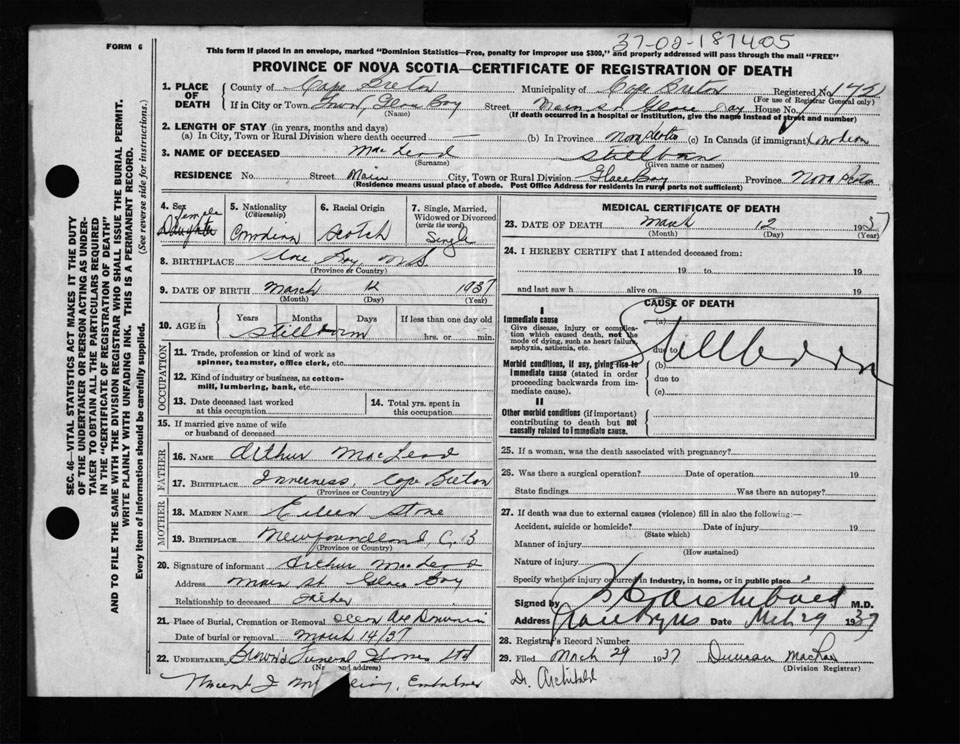 FORM 6
37-02-187405
This form if placed in an envelope, marked "Dominion Statistics—Free, penalty for improper use $300," and properly addressed will pass through the mail "FREE"
PROVINCE OF NOVA SCOTIA—CERTIFICATE OF REGISTRATION OF DEATH
1. PLACE OF DEATH
County of Cape Breton Municipality of Cape Breton Registered No.
(For use of Registrar General only)
If in City or Town Town, Glace Bay Street Main St Glace Bay House No.
(Name) (If death occurred in a hospital or institution, give the name instead of street and number)
2. LENGTH OF STAY (in years, months and days)
(a) In City, Town or Rural Division where death occurred — (b) In Province Nova Scotia (c) In Canada (if immigrant)
3. NAME OF DECEASED MacLeod Stillborn
(Surname) (Given name or names)
RESIDENCE No. Street Main City, Town or Rural Division Glace Bay Province Nova Scotia
(Residence means usual place of abode. Post Office Address for residents in rural parts not sufficient)
4. Sex Female Daughter
5. Nationality (Citizenship) Canadian
6. Racial Origin Scotch
7. Single, Married, Widowed or Divorced (write the word) Single
8. BIRTHPLACE Glace Bay N.S.
(Province or Country)
9. DATE OF BIRTH March 12 1937
(Month) (Day) (Year)
10. AGE in Years Months Days If less than one day old
Stillborn hrs. or min.
OCCUPATION
11. Trade, profession or kind of work as spinner, teamster, office clerk, etc.
12. Kind of industry or business, as cotton-mill, lumbering, bank, etc.
13. Date deceased last worked at this occupation
14. Total yrs. spent in this occupation
15. If married give name of wife or husband of deceased
FATHER
16. NAME Arthur MacLeod
17. BIRTHPLACE Inverness, Cape Breton
(Province or Country)
MOTHER
18. MAIDEN NAME Eileen Stone
19. BIRTHPLACE Newfoundland, C.B
(Province or Country)
20. Signature of informant Arthur MacLeod
Address Main St Glace Bay
Relationship to deceased Father
21. Place of Burial, Cremation or Removal
Date of burial or removal March 14/37
22. UNDERTAKER Brown's Funeral Home Ltd
(Name and address)
Vincent J. Embalmer
MEDICAL CERTIFICATE OF DEATH
23. DATE OF DEATH March 12 1937
(Month) (Day) (Year)
24. I HEREBY CERTIFY that I attended deceased from:
19 to 19
and last saw h alive on 19
CAUSE OF DEATH
I
Immediate cause
Give disease, injury or complication which caused death, not the mode of dying, such as heart failure, asphyxia, asthenia, etc.
(a)
due to
Stillborn
Morbid conditions, if any, giving rise to immediate cause (stated in order proceeding backwards from immediate cause).
(b)
due to
(c)
II
Other morbid conditions (if important) contributing to death but not causally related to immediate cause.
25. If a woman, was the death associated with pregnancy?
26. Was there a surgical operation? Date of operation 19
State findings Was there an autopsy?
27. If death was due to external causes (violence) fill in also the following:—
Accident, suicide or homicide? Date of injury 19
(State which)
Manner of injury
(How sustained)
Nature of injury
Specify whether injury occurred in industry, in home, or in public place
Signed by Archibald M.D.
Address Glace Bay NS Date Mch 29 1937
28. Registrar's Record Number
29. Filed March 29 1937 Duncan MacRae
(Division Registrar)
Dr. Archibald
SEC. 46—VITAL STATISTICS ACT MAKES IT THE DUTY
OF THE UNDERTAKER OR PERSON ACTING AS UNDER-
TAKER TO OBTAIN ALL THE PARTICULARS REQUIRED
IN THE "CERTIFICATE OF REGISTRATION OF DEATH"
AND TO FILE THE SAME WITH THE DIVISION REGISTRAR WHO SHALL ISSUE THE BURIAL PERMIT.
WRITE PLAINLY WITH UNFADING INK. THIS IS A PERMANENT RECORD.
Every item of information should be carefully supplied. (See reverse side for instructions.)